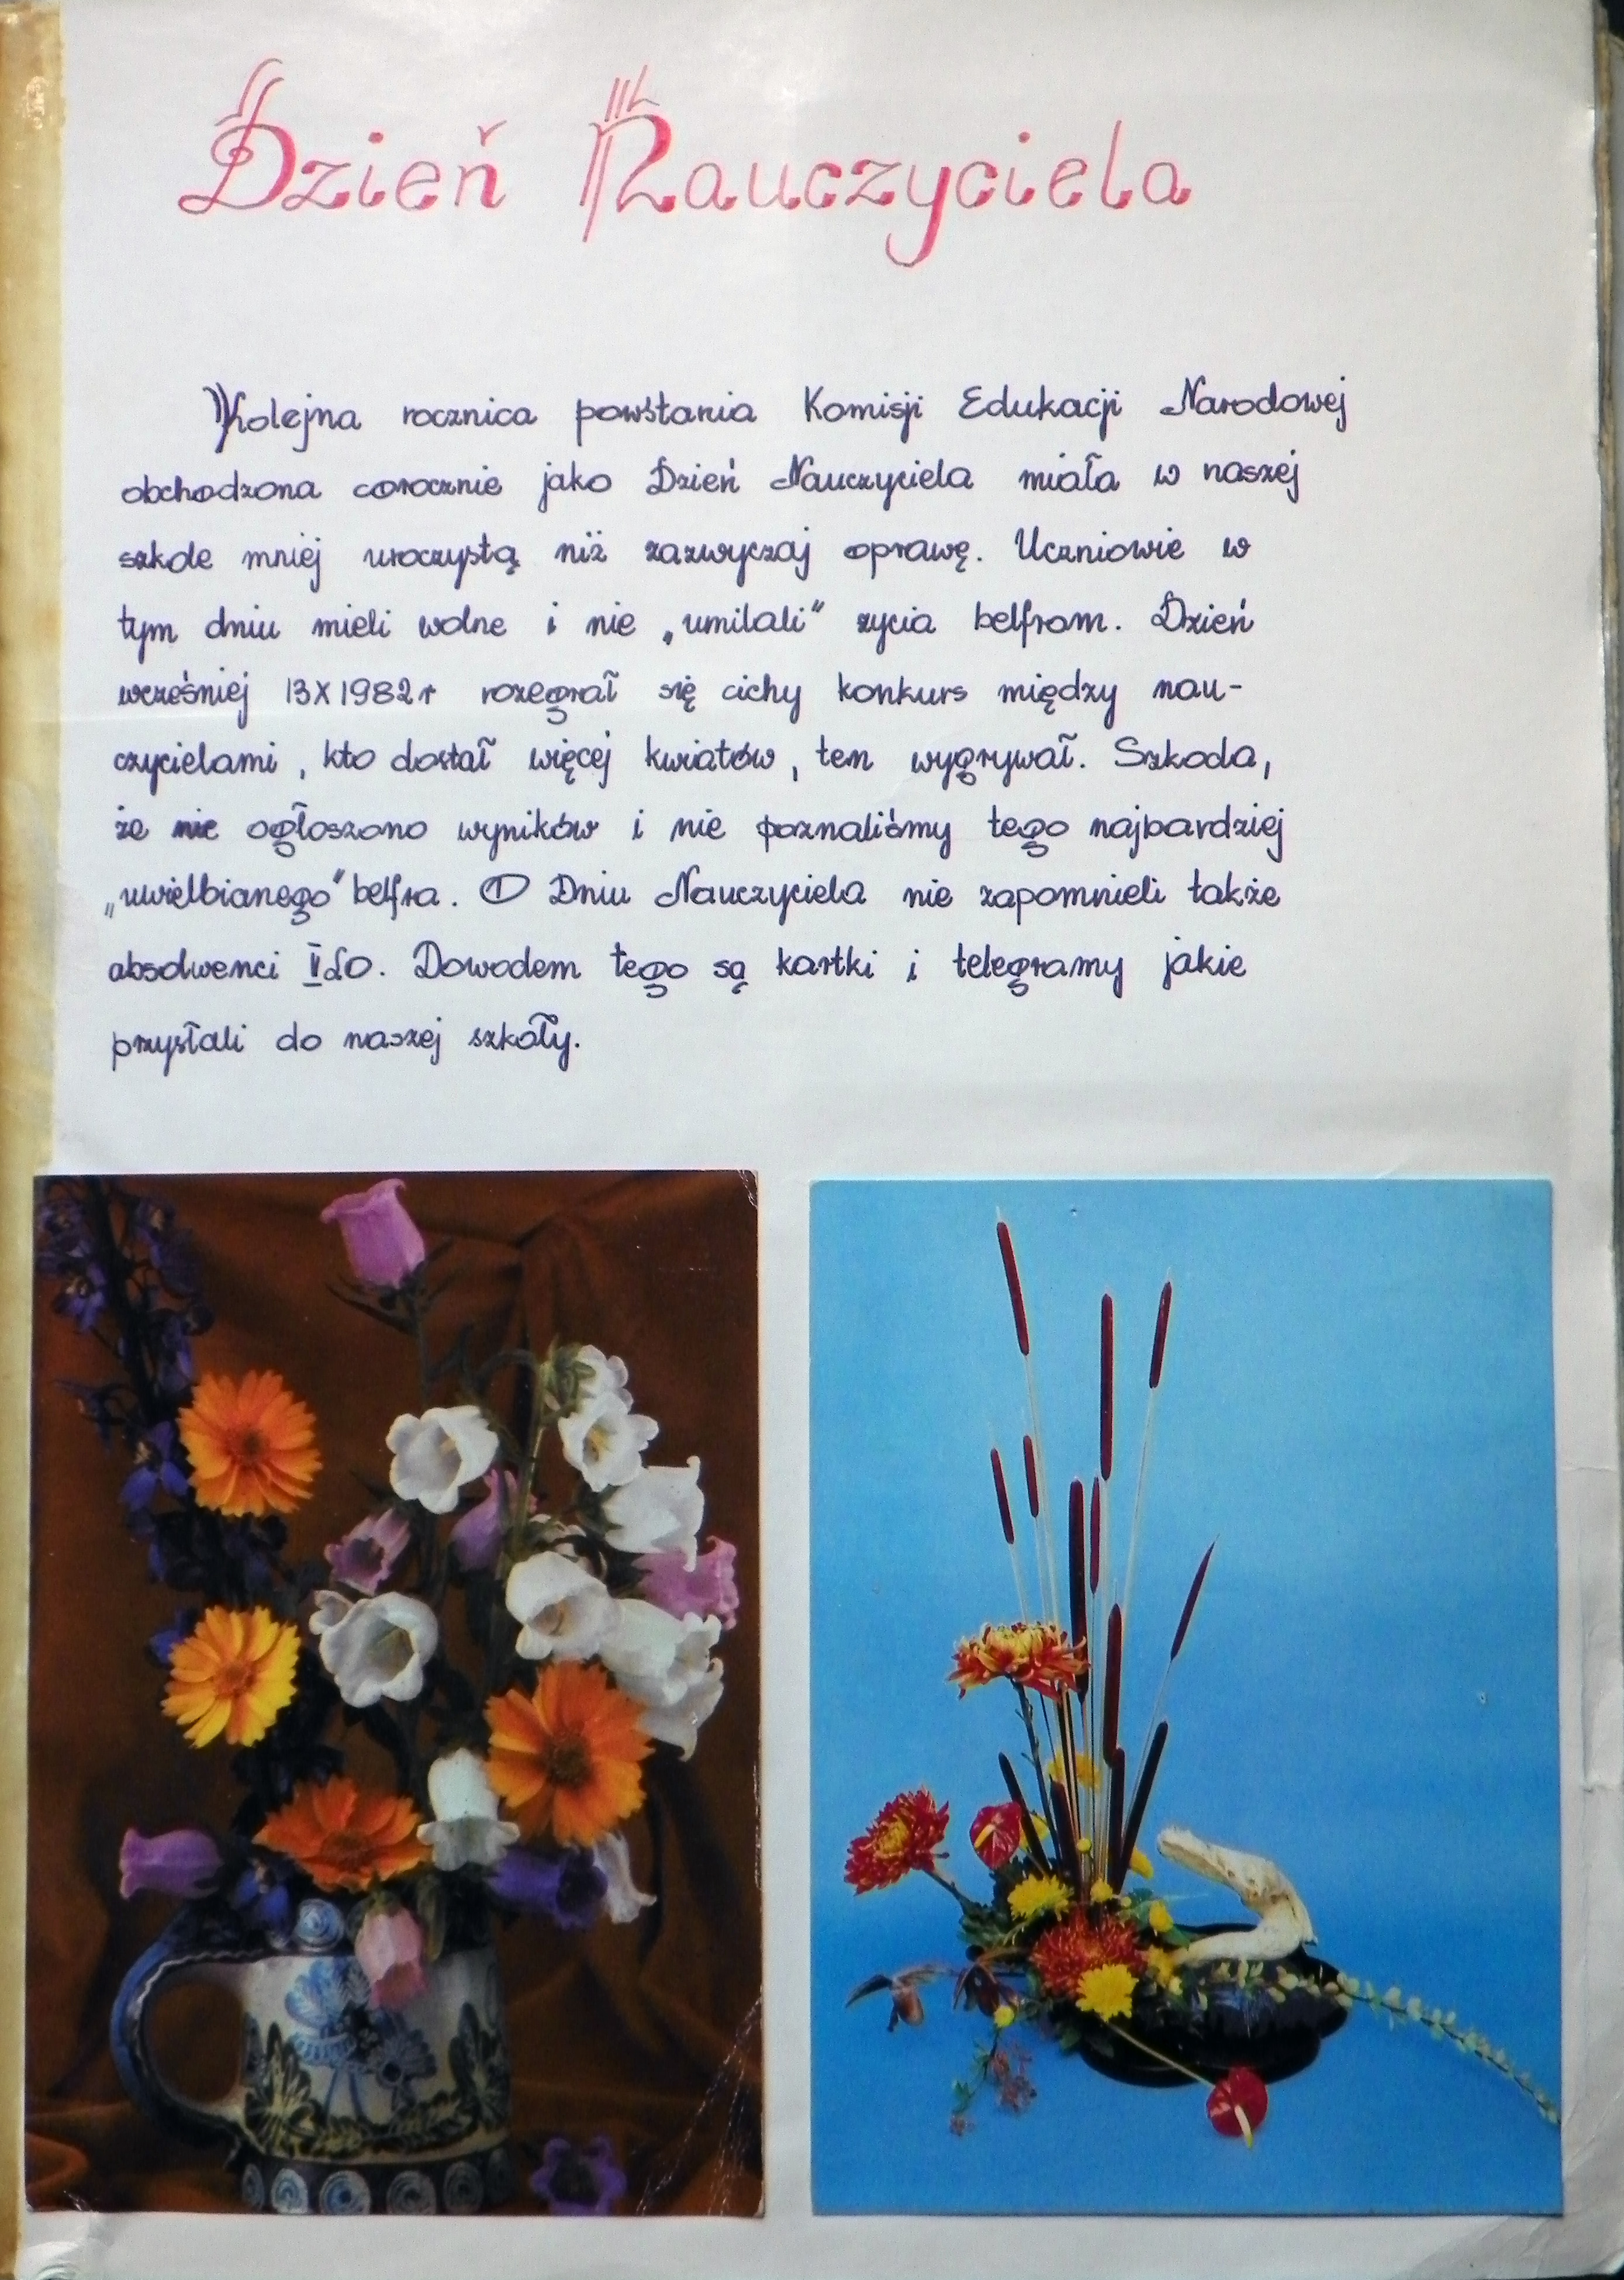 Dzień Nauczyciela
Kolejna rocznica powstania Komisji Edukacji Narodowej
obchodzona corocznie jako Dzień Nauczyciela miała w naszej
szkole mniej uroczystą niż zazwyczaj oprawę. Uczniowie w
tym dniu mieli wolne i nie „umilali” życia belfrom. Dzień
wcześniej 13X1982r rozegrał się cichy konkurs między nau-
czycielami, kto dostał więcej kwiatów, ten wygrywał. Szkoda,
że nie ogłoszono wyników i nie poznaliśmy tego najbardziej
„uwielbianego” belfra. O Dniu Nauczyciela nie zapomnieli także
absolwenci II LO. Dowodem tego są kartki i telegramy jakie
przysłali do naszej szkoły.